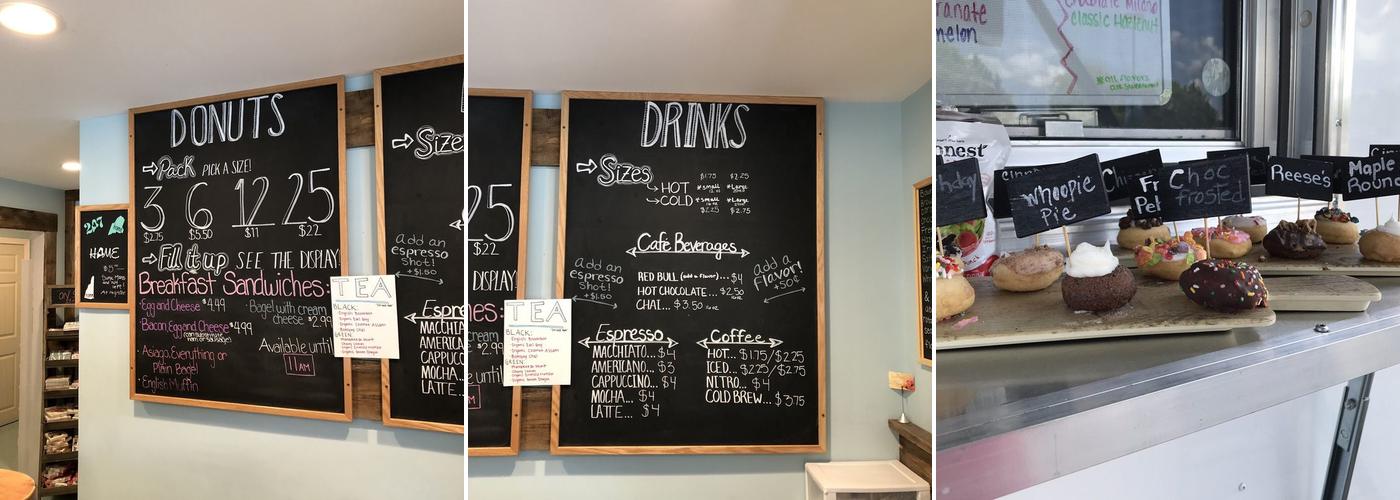 DONUTS
Pack PICK A SIZE!
3 6 12 25
$2.75 $5.50 $11 $22
Fill it up SEE THE DISPLAY!
Breakfast Sandwiches:
Egg and Cheese $4.99
Bacon, Egg and Cheese $4.99
Asiago, Everything or
Plain Bagel
English Muffin
Bagel with cream
cheese $2.99
Available until
11AM
207
HOME
TEA
BLACK:
English Breakfast
Organic Earl Grey
GREEN:
Size
add an
espresso
shot!
+$1.50
Espre
MACCHIA
AMERICA
CAPPUCC
MOCHA...
LATTE...
25
$22
DISPLAY!
hes:
cream
$2.99
until
TEA
BLACK:
English Breakfast
Organic Earl Grey
GREEN:
DRINKS
Sizes
$1.75 $2.25
HOT *small *Large
COLD *small *Large
$2.25 $2.75
Café Beverages
add an
espresso
shot!
+$1.50
RED BULL (add a flavor)... $4
HOT CHOCOLATE... $2.50
CHAI... $3.50
add a
Flavor!
+50¢
Espresso
MACCHIATO... $4
AMERICANO... $3
CAPPUCCINO... $4
MOCHA... $4
LATTE... $4
Coffee
HOT... $1.75/$2.25
ICED... $2.25/$2.75
NITRO... $4
COLD BREW... $3.75
ranate
melon
chocolate Milano
classic Hazelnut
*all flavors
are
onest
hday
Whoopie
Pie
Choc
frosted
Reese's
Maple
Roun